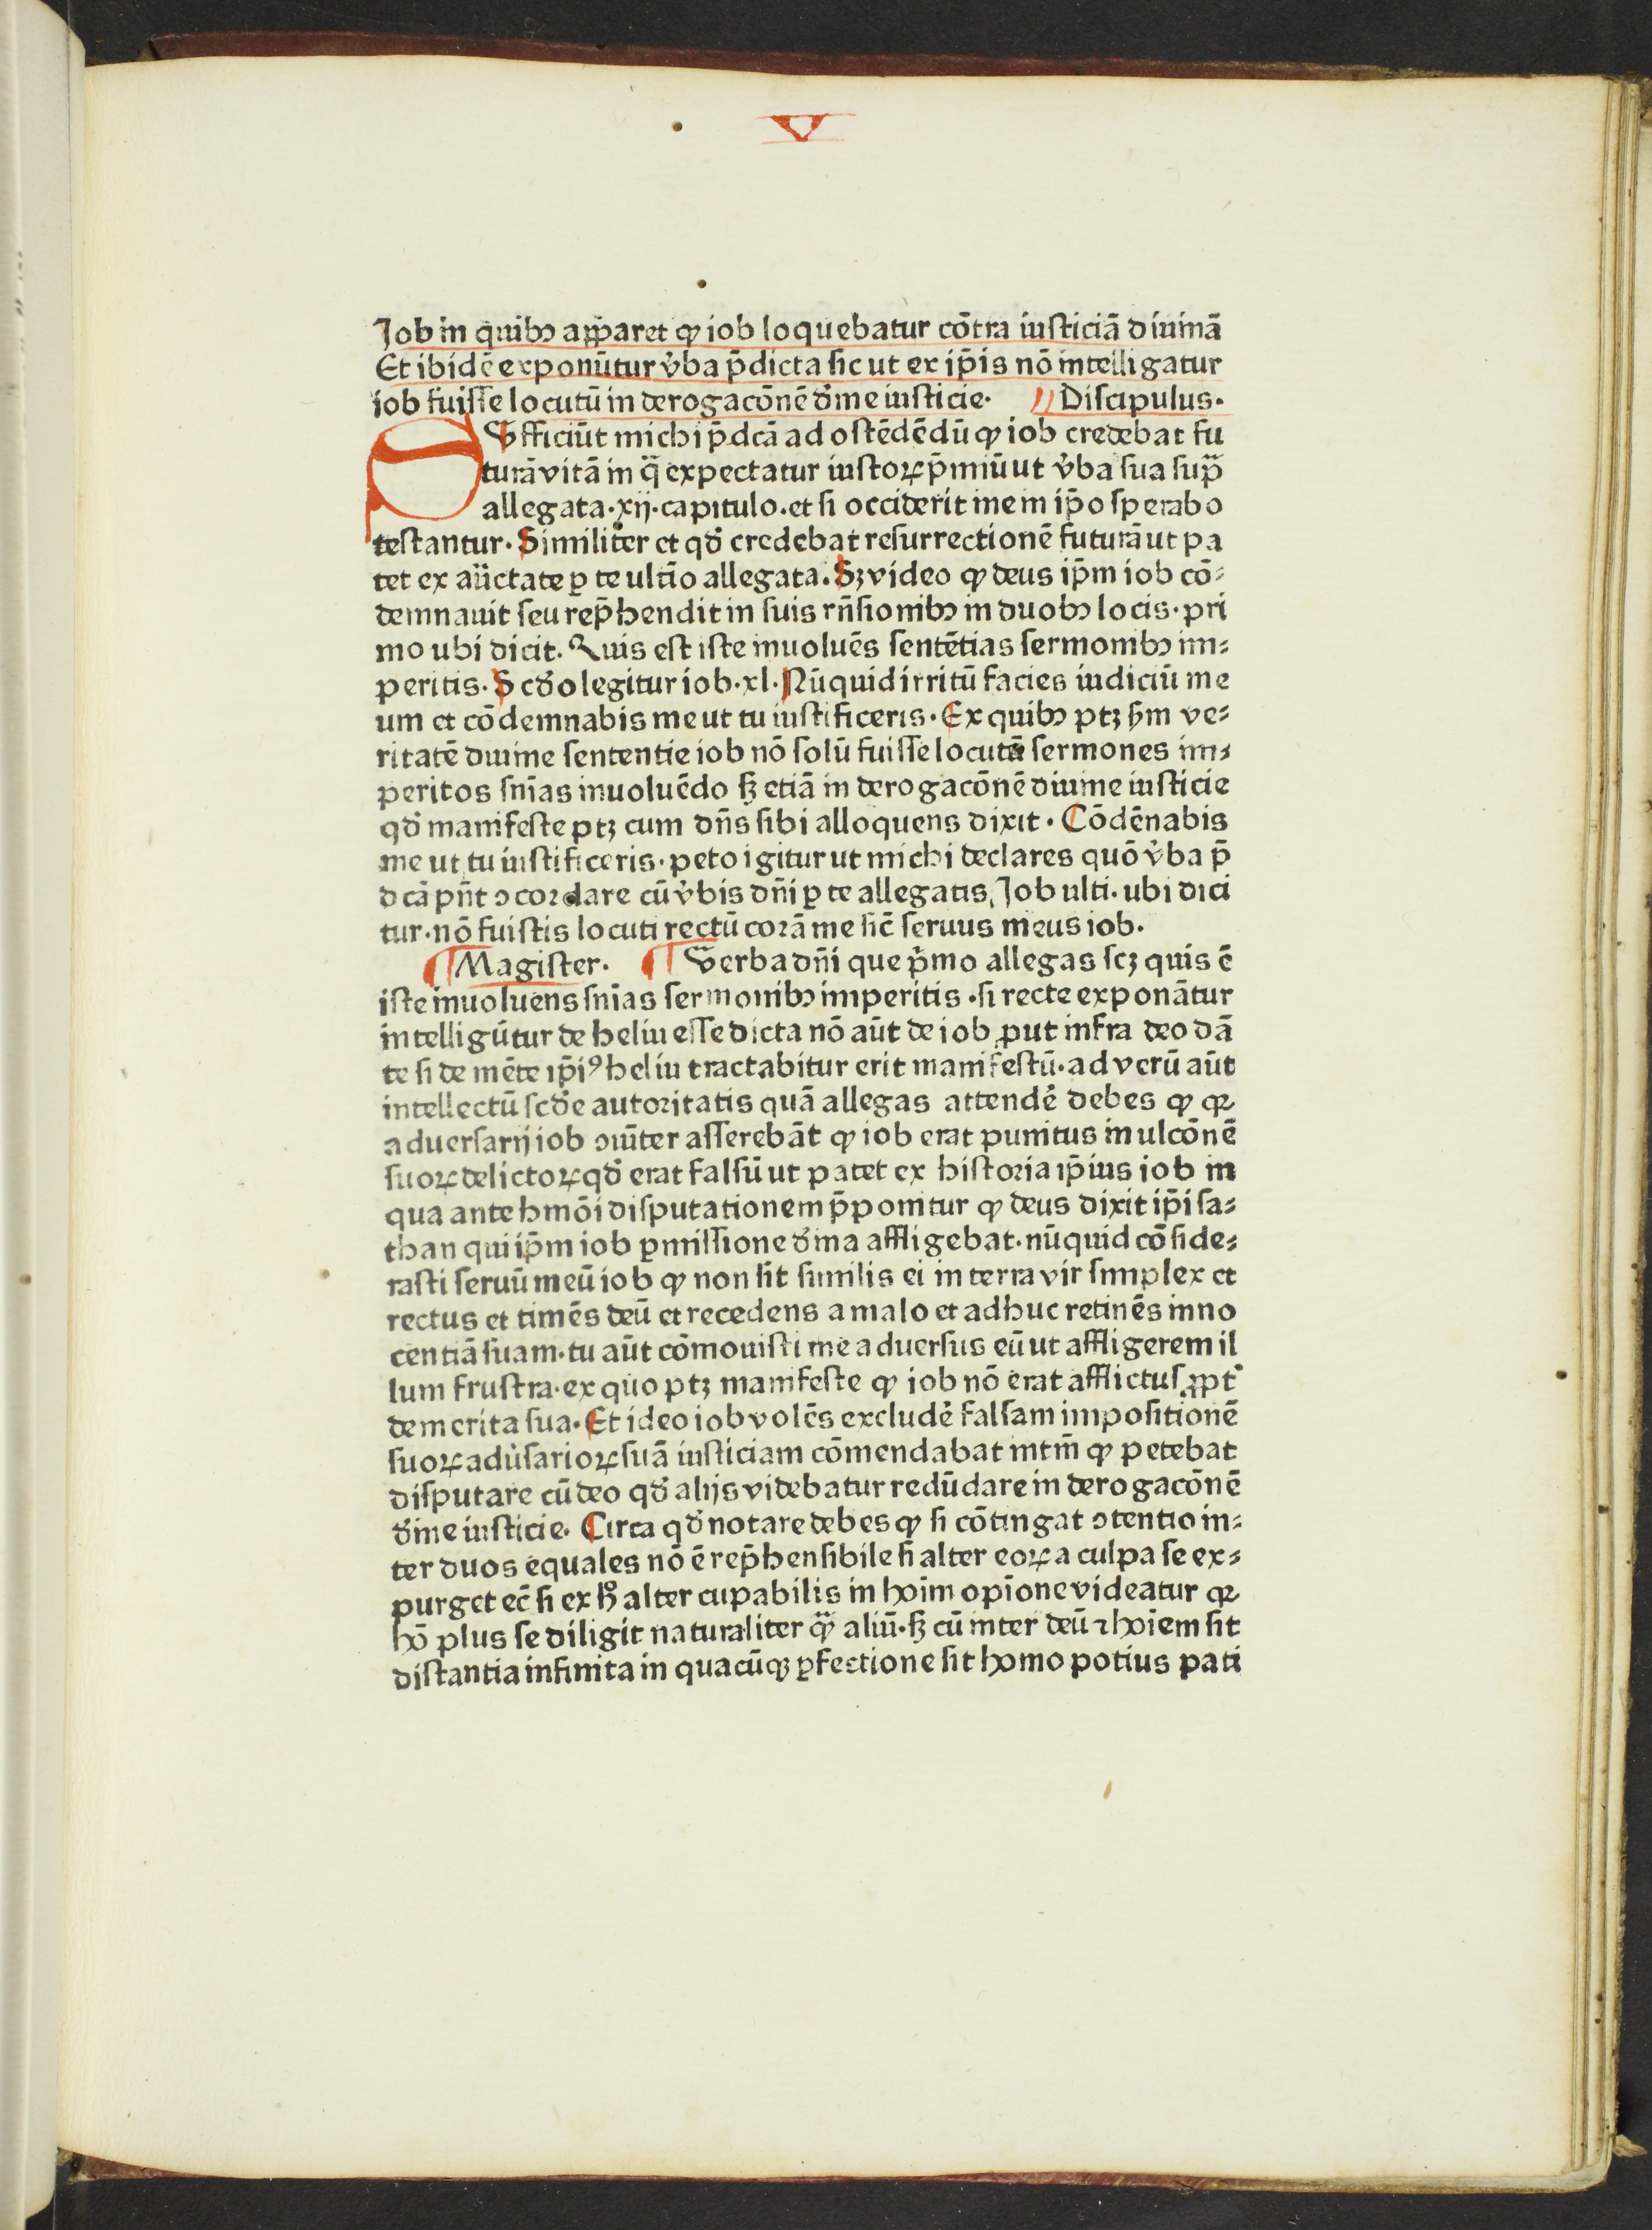 V
Job in quibꝯ apꝑaret ꝙ iob loquebatur cōtra iusticiā diuinā
Et ibidē exponūtur v̓ba p̄dicta sic ut ex ip̄is nō intelligatur
iob fuisse locutū in derogacōnē d̓ine iusticie· Discipulus·
SVfficiūt michi p̄dcā ad ostēdēdū ꝙ iob credebat fu
turā vitā in qᷓ expectatur iustoꝝ p̄miū ut v̓ba sua supᷓ
allegata·xij·capitulo·et si occiderit me in ip̄o sperabo
testantur· Similiter et qd̓ credebat resurrectionē futurā ut pa
tet ex aũctate ꝑ te ultīo allegata· Sꝫ video ꝙ deus ip̄m iob cō⸗
demnauit seu rep̄hendit in suis rn̄sionibꝯ in duobꝯ locis· pri
mo ubi dicit· Quis est iste inuoluēs sentētias sermonibꝯ im⸗
peritis· Scd̓o legitur iob·xl· Nūquid irritū facies iudiciū me
um et cōdemnabis me ut tu iustificeris· Ex quibꝯ ptꝫ ẜm ve⸗
ritatē diuine sententie iob nō solū fuisse locutū sermones im⸗
peritos sn̄ias inuoluēdo ſꝫ etiā in derogacōnē diuine iusticie
qd̓ manifeste ptꝫ cum dn̄s sibi alloquens dixit· Cōdēnabis
me ut tu iustificeris· peto igitur ut michi declares quō v̓ba p̄
dcā pn̄t ↄcordare cū v̓bis dn̄i ꝑ te allegatis, Job ulti· ubi dici
tur· nō fuistis locuti rectū corā me sic̄ seruus meus iob·
Magister· Verba dn̄i que p̓mo allegas scꝫ quis ē
iste inuoluens sn̄ias sermonibꝯ imperitis ·si recte exponātur
intelligūtur de heliu esse dicta nō aūt de iob ꝓut infra deo dā
te si de mēte ip̄iꝰ heliu tractabitur erit manifestū· ad verū aūt
intellectū scd̓e autoritatis quā allegas attendē debes ꝙ qꝛ
aduersarij iob ↄiūter asserebāt ꝙ iob erat punitus in ulcōnē
suoꝝ delictoꝝ qd̓ erat falsū ut patet ex historia ip̄ius iob in
qua ante hmōi disputationem p̄ponitur ꝙ deus dixit ip̄i sa⸗
than qui ip̄m iob ꝑmissione d̓ina affligebat· nūquid cōside⸗
rasti seruū meū iob ꝙ non sit similis ei in terra vir simplex et
rectus et timēs deū et recedens a malo et adhuc retinēs inno
centiā suam· tu aūt cōmouisti me aduersus eū ut affligerem il
lum frustra· ex quo ptꝫ manifeste ꝙ iob nō erat afflictus ꝓpt̓
demerita sua· Et ideo iob volēs excludē falsam impositionē
suoꝝ adu̓sarioꝝ suā iusticiam cōmendabat intm̄ ꝙ petebat
disputare cū deo qd̓ alijs videbatur redūdare in derogacōnē
d̓ine iusticie· Circa qd̓ notare debes ꝙ si cōtingat ↄtentio in⸗
ter duos equales nō ē rep̄hensibile si alter eoꝝ a culpa se ex⸗
purget ec̄ si ex h̊ alter cupabilis in hoim opīone videatur qꝛ
hō plus se diligit naturaliter qᷓꝫ aliū· ſꝫ cū inter deū ⁊ hoīem sit
distantia infinita in quacūqꝫ ꝑfectione sit homo potius pati